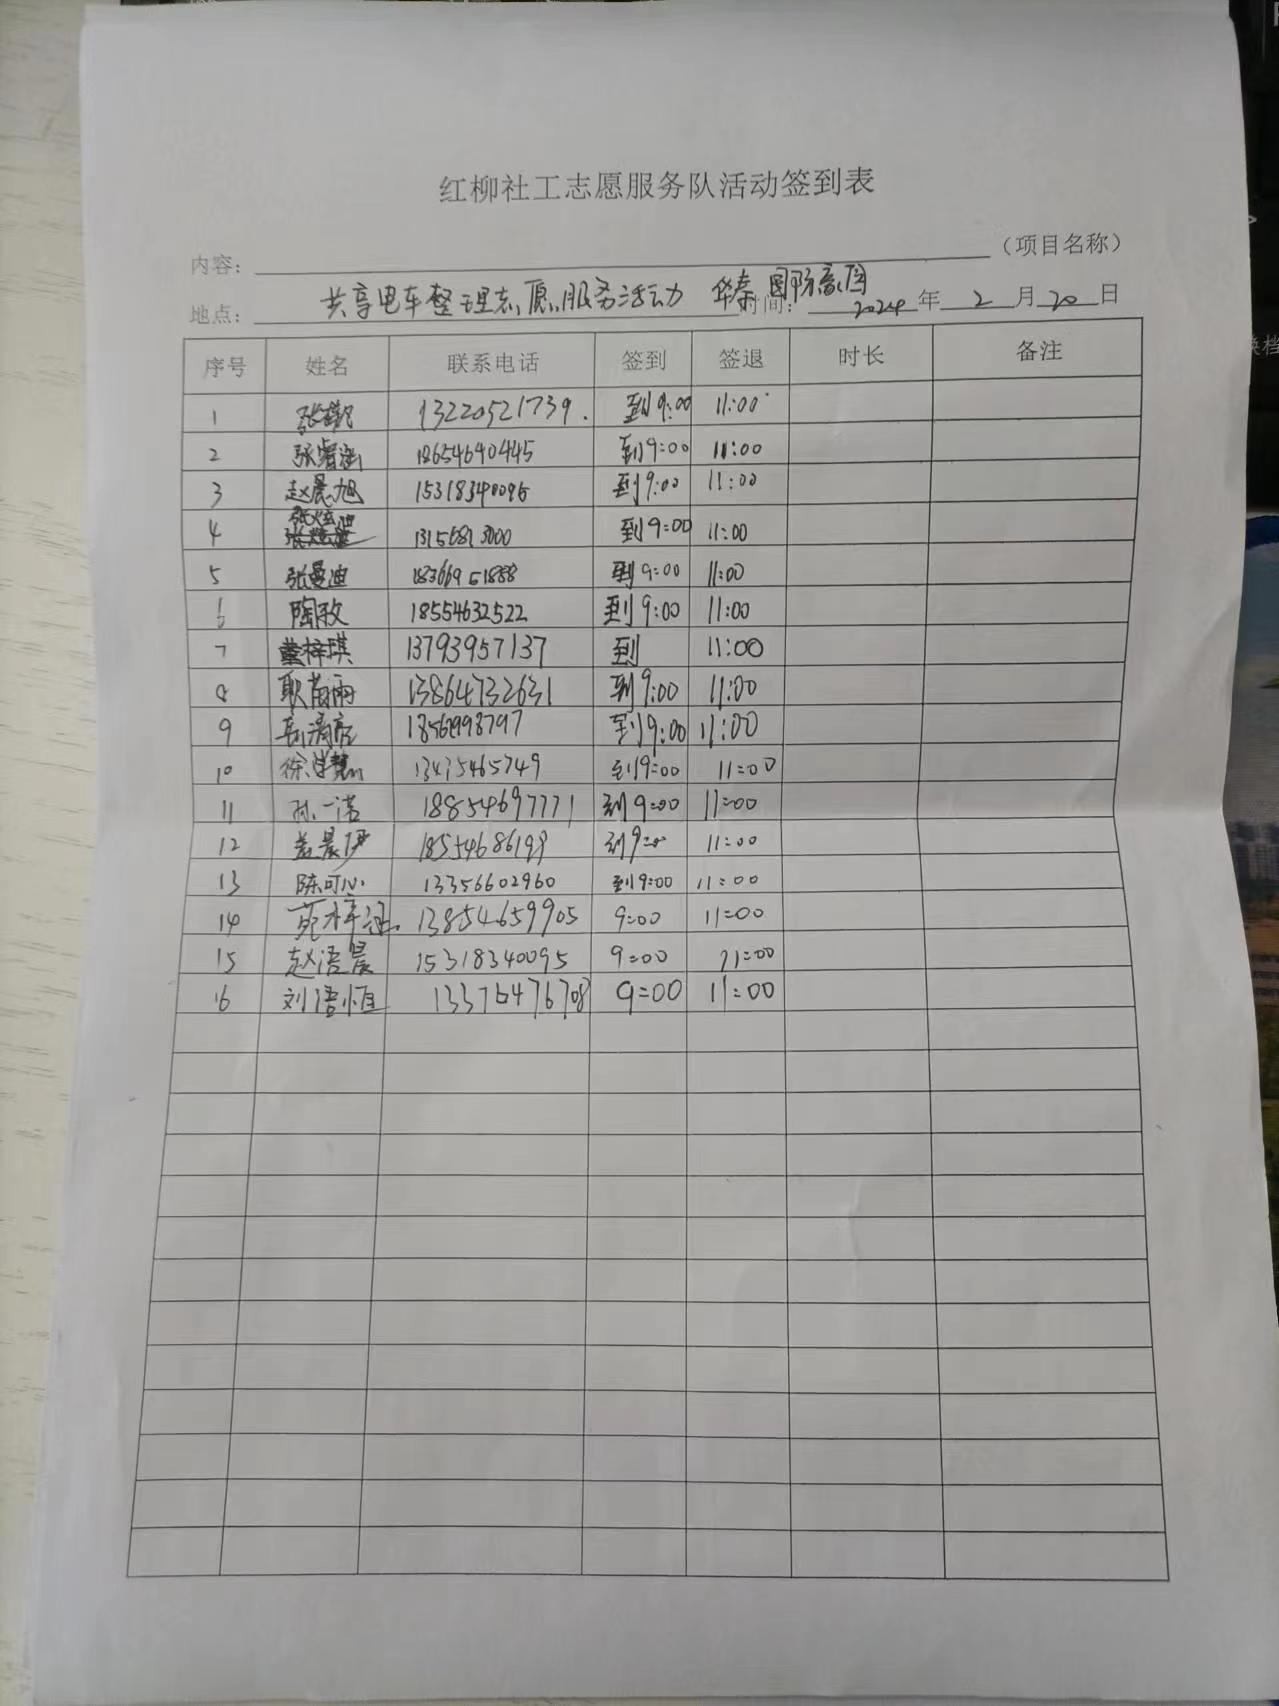 红柳社工志愿服务队活动签到表
内容： （项目名称）
共享电车整理志愿服务活动 华泰国际
地点： 时间： 2024 年 2 月 20 日
序号 姓名 联系电话 签到 签退 时长 备注
1 张 13220521739. 到9:00 11:00
2 张睿涵 18654640445 到9:00 11:00
3 赵晨旭 15318340095 到9:00 11:00
4 张 到9:00 11:00
5 张曼迪 18366951888 到9:00 11:00
6 陶玫 18554632522 到9:00 11:00
7 董梓琪 13793957137 到 11:00
8 耿雨 13864732631 到9:00 11:00
9 18561998797 到9:00 11:00
10 徐学慧 13475465749 到9:00 11:00
11 孙一诺 18854697771 到9:00 11:00
12 盖晨伊 18554686199 到9:00 11:00
13 陈可心 13356602960 到9:00 11:00
14 苑梓涵 13854659905 9:00 11:00
15 赵语晨 15318340095 9:00 11:00
16 刘语恒 13376476708 9:00 11:00